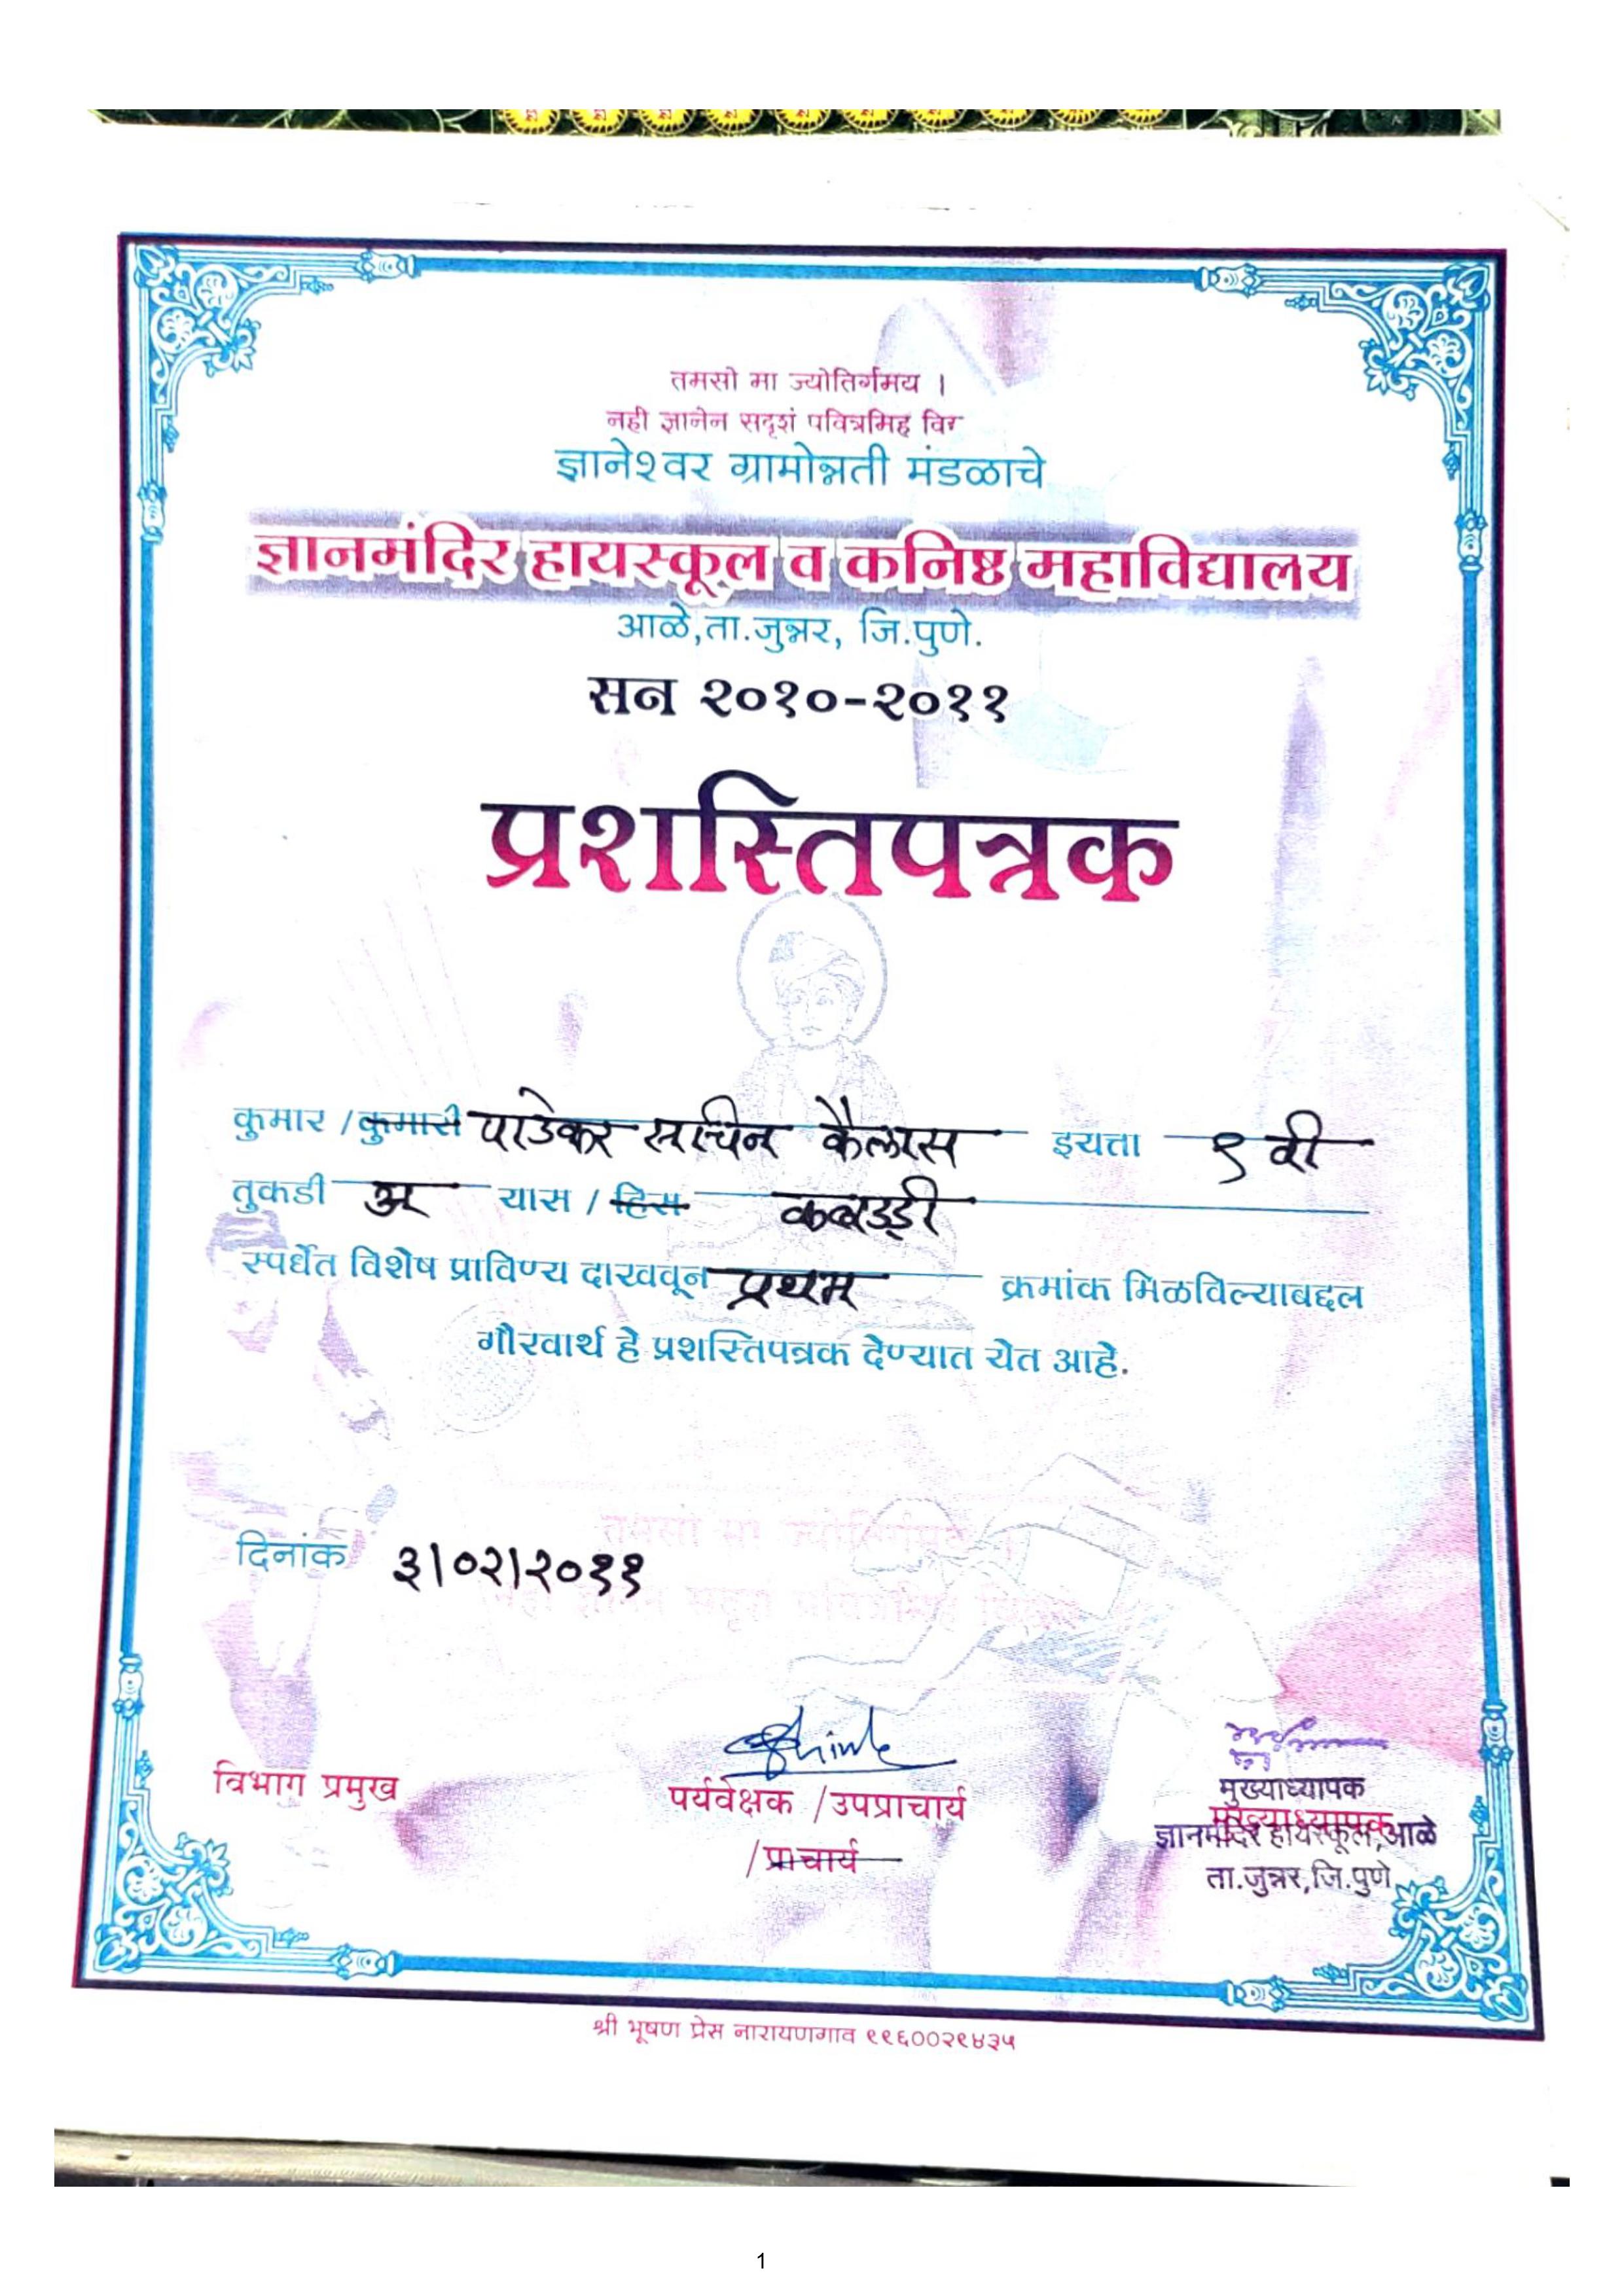 तमसो मा ज्योतिर्गमय ।
नही ज्ञानेन सदृशं पवित्रमिह
ज्ञानेश्वर ग्रामोन्नती मंडळाचे
ज्ञानमंदिर हायस्कूल व कनिष्ठ महाविद्यालय
आळे,ता.जुन्नर, जि.पुणे.
सन २०१०-२०११
प्रशस्तिपत्रक
कुमार /कुमारी पाडेकर सचिन कैलास इयत्ता ९ वी
तुकडी अ यास / हिस कबड्डी
स्पर्धेत विशेष प्राविण्य दाखवून प्रथम क्रमांक मिळविल्याबद्दल
गौरवार्थ हे प्रशस्तिपत्रक देण्यात येत आहे.
तमसो मा
दिनांक ३।०२।२०११
Shinde
विभाग प्रमुख
पर्यवेक्षक /उपप्राचार्य
/प्राचार्य
मुख्याध्यापक
मुख्याध्यापक
ज्ञानमंदिर हायस्कूल,आळे
ता.जुन्नर,जि.पुणे
श्री भूषण प्रेस नारायणगाव ९९६००२९४३५
1